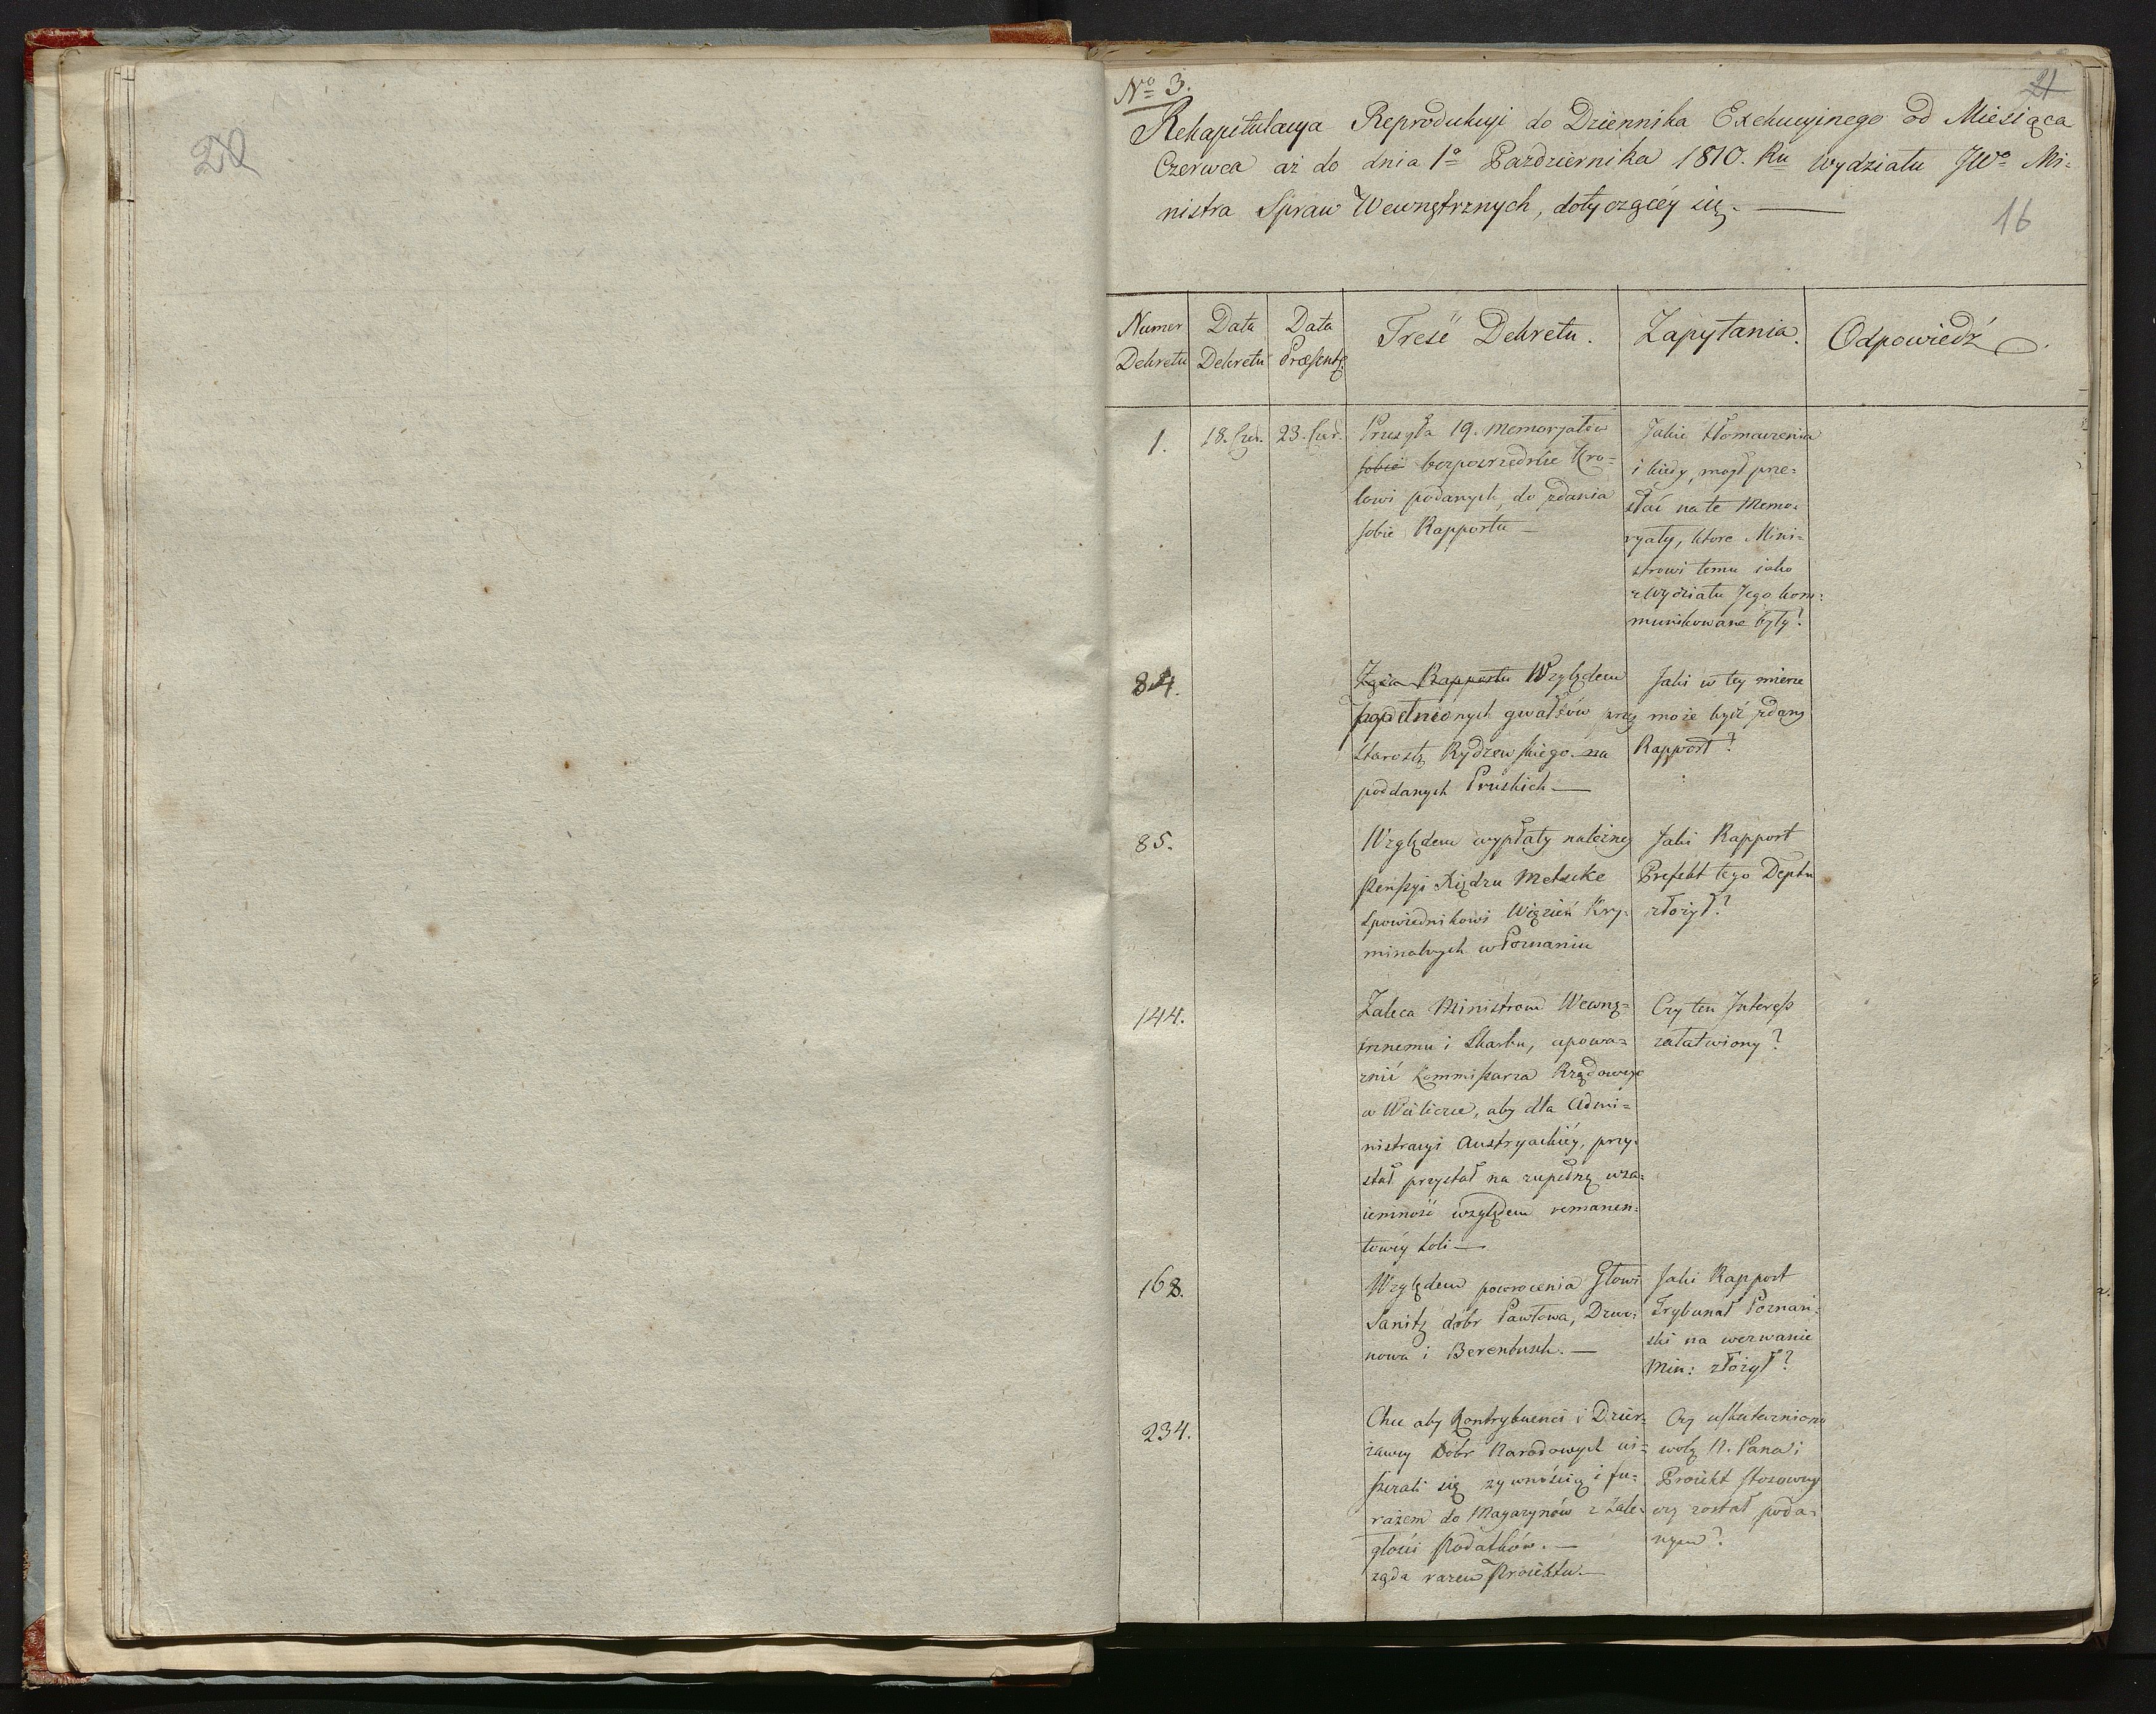 20
No 3.
21
Rekapitulacya Reprodukcyi do Dziennika Exekucyinego od Miesiąca
Czerwca aż do dnia 1o Pazdziernika 1810. Ru Wydziału JWo Mi=
nistra Spraw Wewnętrznych, dotyczącéy się. —
16
Numer Dekretu
Data Dekretu
Data Præsentę.
Treść Dekretu.
Zapytania.
Odpowiedź
1.
18. Czer.
23. Czer.
Przesyła 19. Memoryałów
sobie bezpośrzednie Kró=
lowi podanych, do zdania
sobie Rapportu —
Jakie tłomaczenia
i kiedy, mógł prze=
słać na te Memo=
ryały, które Mini=
strowi temu iako
z Wydziału Jego kom=
munikowane były?
84.
Żąda Rapportu Względem
popełnionych gwałtów przez
Starostę Rydzewskiego na
poddanych Pruskich —
Jaki w tey mierze
może bydź zdany
Rapport?
85.
Względem wypłaty należney
pensyi Xiędzu Metzke
Spowiednikowi Więzień Kry=
minalnych w Poznaniu
Jaki Rapport
Prefekt tego Deptu
złożył?
144.
Zaleca Ministrom Wewnę=
trznemu i Skarbu, upowa=
żnić Kommissarza Rządowego
w Wieliczce, aby dla Admi=
nistracyi Austryackiéy, przy=
stał przystał na zupełną wza=
iemność względem remanen=
towéy soli —
Czy ten Interess
załatwiony?
168.
Względem powrócenia Głowi
Sanitz dóbr Pawłowa, Drwo=
nowa i Berenbusch. —
Jaki Rapport
Trybunał Poznań=
ski na wezwanie
Min: złożył?
234.
Chce aby Kontrybuenci i Dzier=
żawcy Dóbr Narodowych ui=
szczali się żywnością i fu=
rażem do Magazynów z zale=
głości Podatków. —
żąda razem Proiektu. —
Czy uskuteczniono
wolę N. Pana i
Proiekt stosowny
czy został poda=
nym?